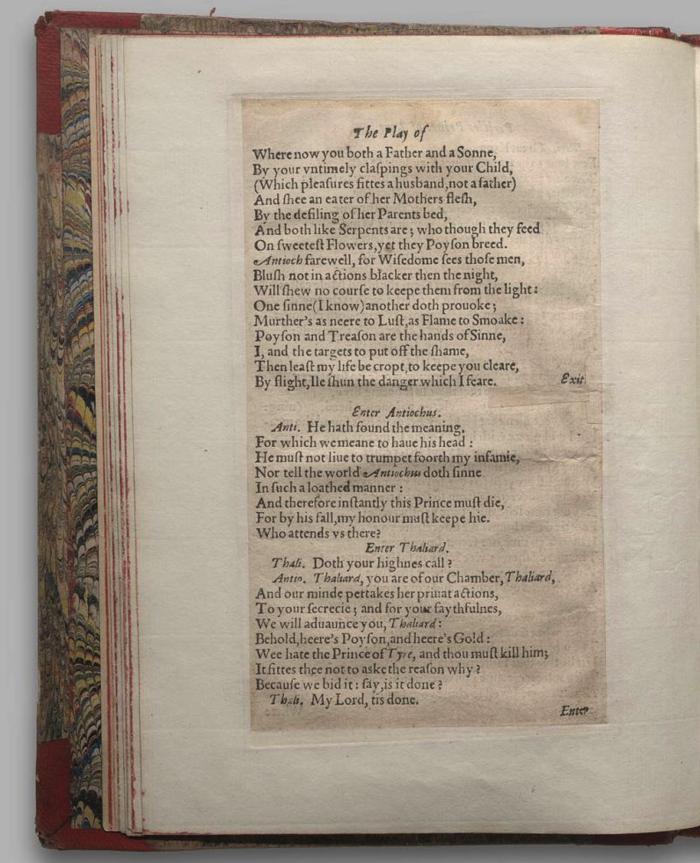 The Play of
Where now you both a Father and a Sonne,
By your vntimely claſpings with your Child,
(Which pleaſures fittes a husband, not a father)
And ſhee an eater of her Mothers fleſh,
By the defiling of her Parents bed,
And both like Serpents are; who though they feed
On ſweeteſt Flowers, yet they Poyſon breed.
Antioch farewell, for Wiſedome ſees thoſe men,
Bluſh not in actions blacker then the night,
Will ſhew no courſe to keepe them from the light:
One ſinne (I know) another doth prouoke;
Murther's as neere to Luſt, as Flame to Smoake:
Poyſon and Treaſon are the hands of Sinne,
I, and the targets to put off the ſhame,
Then leaſt my life be cropt, to keepe you cleare,
By flight, Ile ſhun the danger which I feare. Exit
Enter Antiochus.
Anti. He hath found the meaning,
For which we meane to haue his head:
He muſt not liue to trumpet foorth my infamie,
Nor tell the world Antiochus doth ſinne
In ſuch a loathed manner:
And therefore inſtantly this Prince muſt die,
For by his fall, my honour muſt keepe hie.
Who attends vs there?
Enter Thaliard.
Thali. Doth your highnes call?
Antio. Thaliard, you are of our Chamber, Thaliard,
And our minde pertakes her priuat actions,
To your ſecrecie; and for your faythfulnes,
We will aduaunce you, Thaliard:
Behold, heere's Poyſon, and heere's Gold:
Wee hate the Prince of Tyre, and thou muſt kill him;
It fittes thee not to aske the reaſon why?
Becauſe we bid it: ſay, is it done?
Thali. My Lord, tis done.
Enter